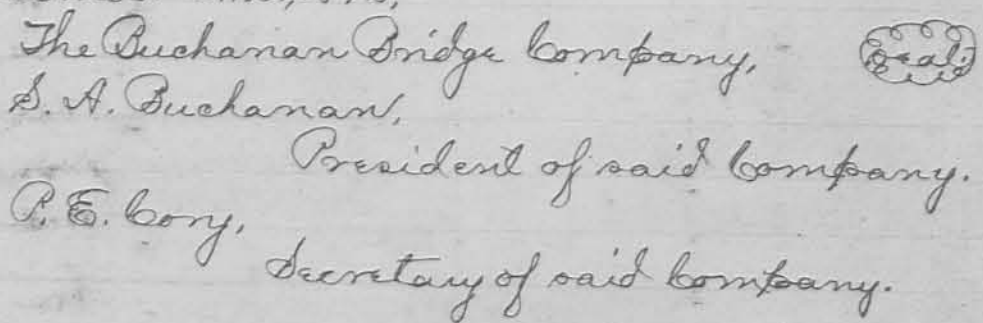 The Buchanan Bridge Company, Seal.
S. A. Buchanan,
President of said Company.
P. E. Cory,
Secretary of said Company.